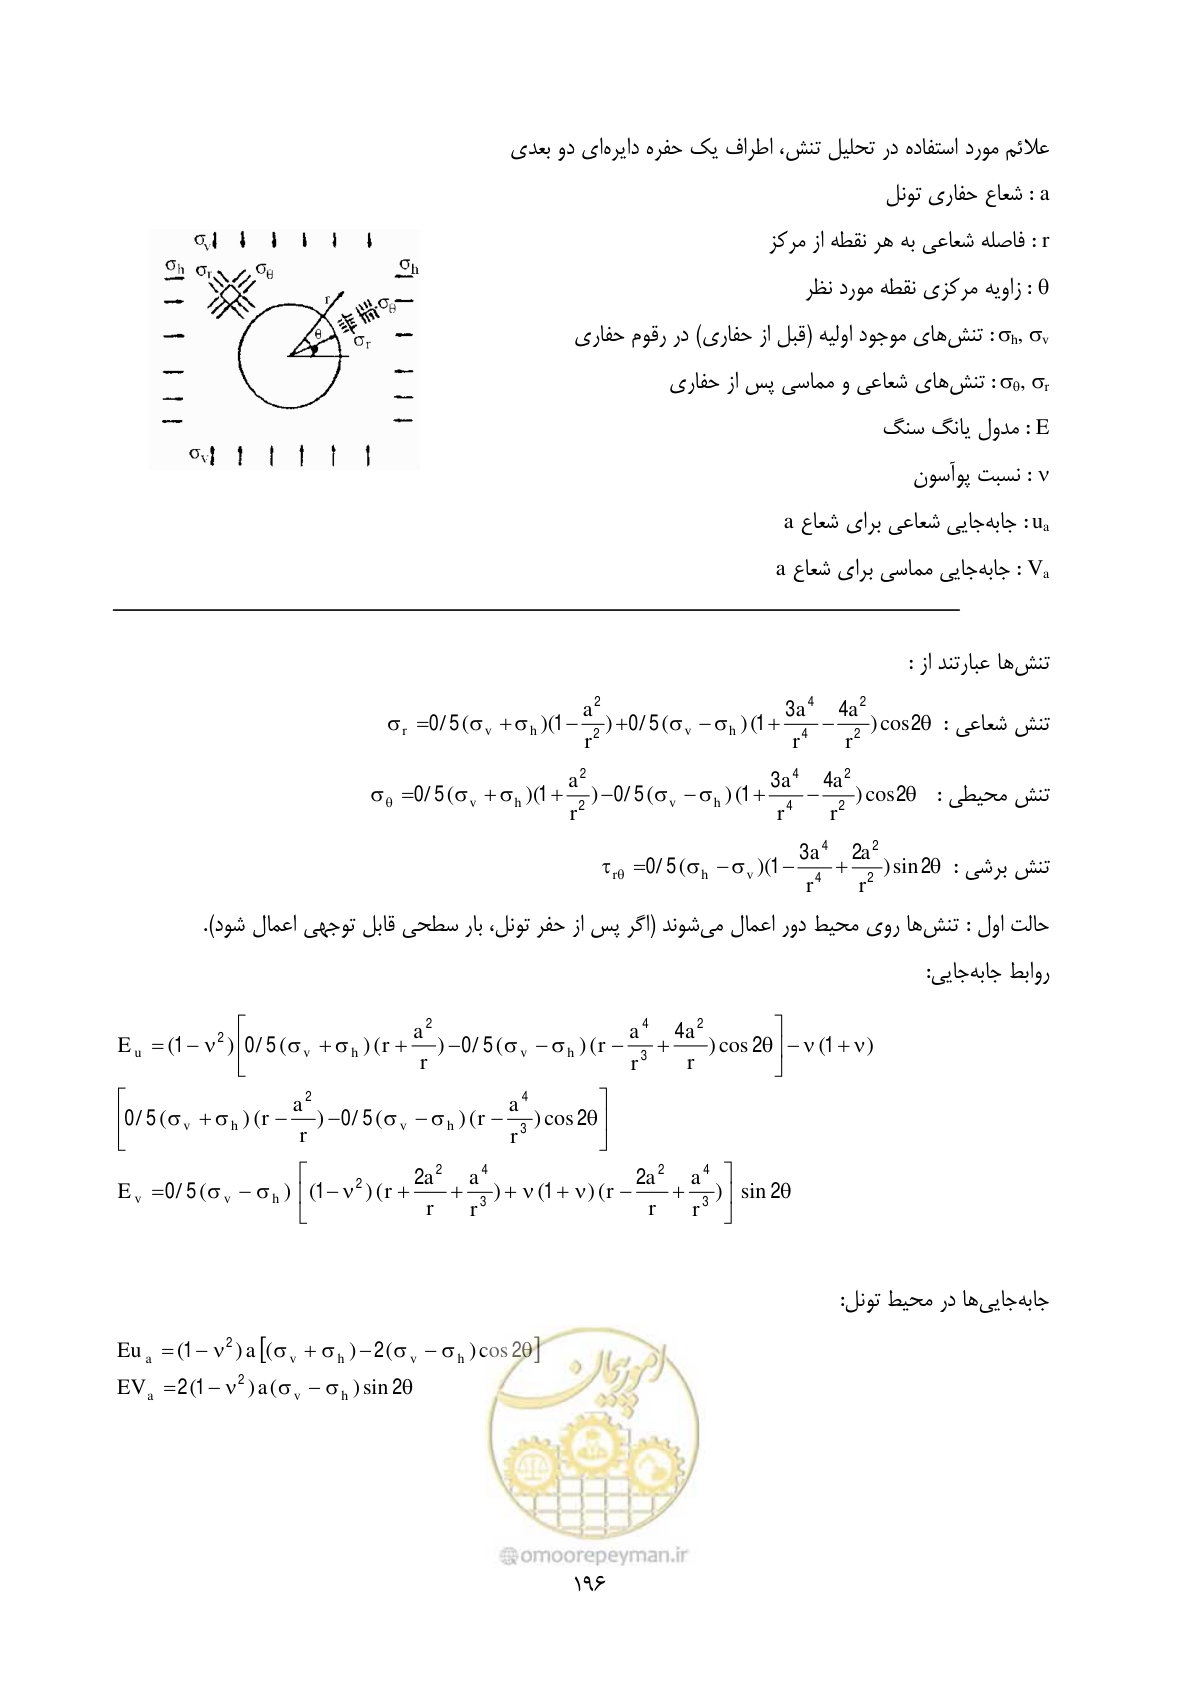 علائم مورد استفاده در تحلیل تنش، اطراف یک حفره دایره‌ای دو بعدی
a : شعاع حفاری تونل
r : فاصله شعاعی به هر نقطه از مرکز
θ : زاویه مرکزی نقطه مورد نظر
σh, σv : تنش‌های موجود اولیه (قبل از حفاری) در رقوم حفاری
σθ, σr : تنش‌های شعاعی و مماسی پس از حفاری
E : مدول یانگ سنگ
ν : نسبت پوآسون
ua : جابه‌جایی شعاعی برای شعاع a
Va : جابه‌جایی مماسی برای شعاع a
σv
σh σr σθ σh
r
θ σθ
σr
σv
تنش‌ها عبارتند از :
تنش شعاعی : σr =0/5(σv +σh)(1− a²/r²)+0/5(σv −σh)(1+ 3a⁴/r⁴ − 4a²/r²)cos2θ
تنش محیطی : σθ =0/5(σv +σh)(1+ a²/r²)−0/5(σv −σh)(1+ 3a⁴/r⁴ − 4a²/r²)cos2θ
تنش برشی : τrθ =0/5(σh −σv)(1− 3a⁴/r⁴ + 2a²/r²)sin2θ
حالت اول : تنش‌ها روی محیط دور اعمال می‌شوند (اگر پس از حفر تونل، بار سطحی قابل توجهی اعمال شود).
روابط جابه‌جایی:
Eu =(1−ν²)[0/5(σv +σh)(r + a²/r)−0/5(σv −σh)(r − a⁴/r³ + 4a²/r)cos2θ]−ν(1+ν)
[0/5(σv +σh)(r − a²/r)−0/5(σv −σh)(r − a⁴/r³)cos2θ]
Ev =0/5(σv −σh)[(1−ν²)(r + 2a²/r + a⁴/r³)+ν(1+ν)(r − 2a²/r + a⁴/r³)]sin2θ
جابه‌جایی‌ها در محیط تونل:
Eua =(1−ν²)a[(σv +σh)−2(σv −σh)cos2θ]
EVa =2(1−ν²)a(σv −σh)sin2θ
امور پیمان
@omoorepeyman.ir
۱۹۶